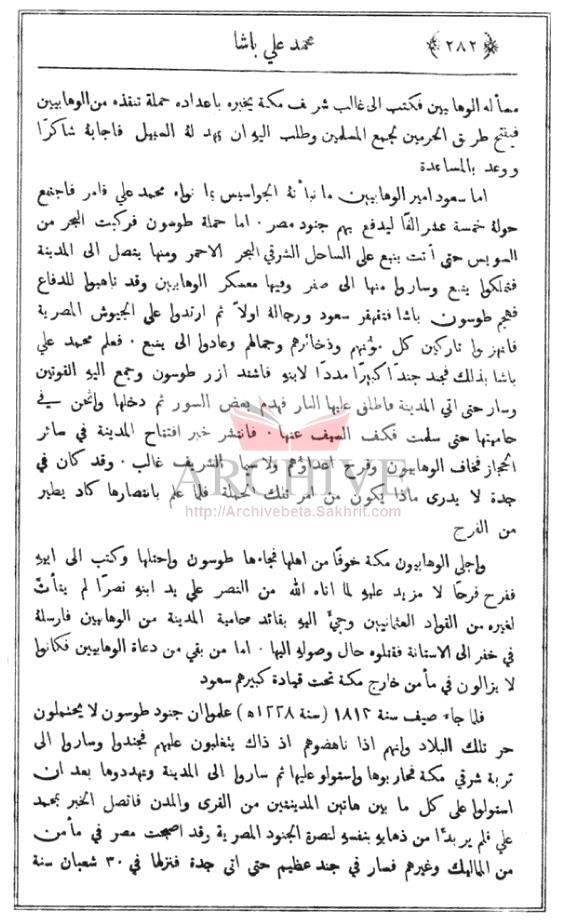 ﴿٢٨٢﴾
محمد علي باشا
مسأله الوهابيين فكتب الى غالب شريف مكة يخبره باعداده حملة تنقذه من الوهابيين
فيفتح طريق الحرمين لجميع المسلمين وطلب اليه ان يمهد له السبيل فاجابه شاكرًا
ووعد بالمساعدة
اما سعود امير الوهابيين ما نبأ ته الجواسيس بما نواه محمد علي فامر فاجتمع
حوله خمسة عشر الفًا ليدفع بهم جنود مصر ۰ اما حملة طوسون فركبت البحر من
السويس حتى أتت ينبع على الساحل الشرقي البحر الاحمر ومنها يتصل الى المدينة
فتملكوا ينبع وساروا منها الى صفر وفيها معسكر الوهابيين وقد تاهبوا للدفاع
فهجم طوسون باشا فتقهقر سعود ورجاله اولاً ثم ارتدوا على الجيوش المصرية
فانهزموا تاركين كل مؤنهم وذخائرهم وجمالهم وعادوا الى ينبع ۰ فعلم محمد علي
باشا بذلك فجند جندًا كبيرًا مددًا لابنه فاشتد ازر طوسون وجمع اليه القوتين
وسار حتى اتى المدينة فاطلق عليها النار فهدم بعض السور ثم دخلها واثخن في
حاميتها حتى سلمت فكف السيف عنها ۰ فانتشر خبر افتتاح المدينة في سائر
الحجاز فخاف الوهابيون وفرح اعداؤهم ولا سيما الشريف غالب ۰ وقد كان في
جدة لا يدرى ماذا يكون من امر تلك الحملة فلما علم بانتصارها كاد يطير
من الفرح
واجلى الوهابيون مكة خوفًا من اهلها فجاءها طوسون واحتلها وكتب الى ابيه
ففرح فرحًا لا مزيد عليه لما اتاه الله من النصر على يد ابنه نصرًا لم يتأتَ
لغيره من القواد العثمانيين وجيءَ اليه بقائد محامية المدينة من الوهابيين فارسله
في خفر الى الاستانة فقتلوه حال وصوله اليها ۰ اما من بقي من دعاة الوهابيين فكانوا
لا يزالون في مأمن خارج مكة تحت قيادة كبيرهم سعود
فلما جاء صيف سنة ١٨١٢ (سنة ١٢٢٨ﻫ) علموا ان جنود طوسون لا يحتملون
حر تلك البلاد وانهم اذا ناهضوهم اذ ذاك يتغلبون عليهم فجندوا وساروا الى
تربة شرقي مكة فحاربوها واستولو عليها ثم ساروا الى المدينة وتهددوها بعد ان
استولوا على كل ما بين هاتين المدينتين من القرى والمدن فاتصل الخبر بمحمد
علي فلم ير بدًّا من ذهابه بنفسه لنصرة الجنود المصرية وقد اصبحت مصر في مأمن
من المماليك وغيرهم فسار في جند عظيم حتى اتى جدة فنزلها في ٣٠ شعبان سنة
ARCHIVE
http://Archivebeta.Sakhrit.com